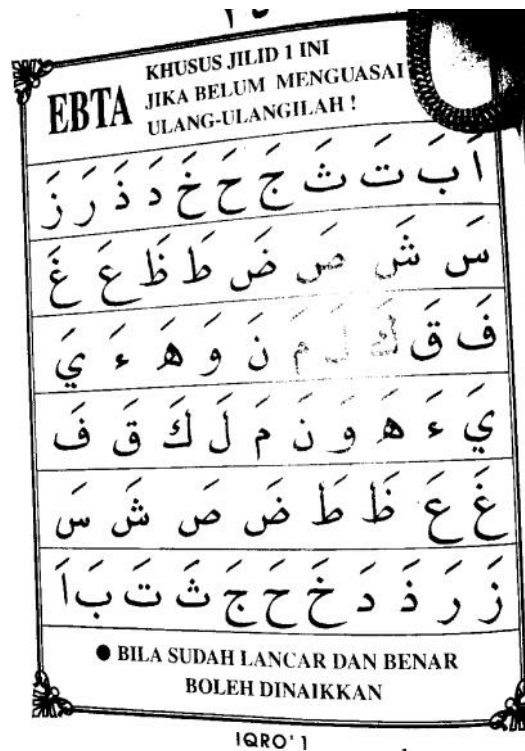 ٣٥
EBTA
KHUSUS JILID 1 INI
JIKA BELUM MENGUASAI
ULANG-ULANGILAH !
اَ بَ تَ ثَ جَ حَ خَ دَ ذَ رَ زَ
سَ شَ صَ ضَ طَ ظَ عَ غَ
فَ قَ كَ لَ مَ نَ وَ هَ ءَ يَ
يَ ءَ هَ وَ نَ مَ لَ كَ قَ فَ
غَ عَ ظَ طَ ضَ صَ شَ سَ
زَ رَ ذَ دَ خَ حَ جَ ثَ تَ بَ اَ
● BILA SUDAH LANCAR DAN BENAR
BOLEH DINAIKKAN
IQRO' 1